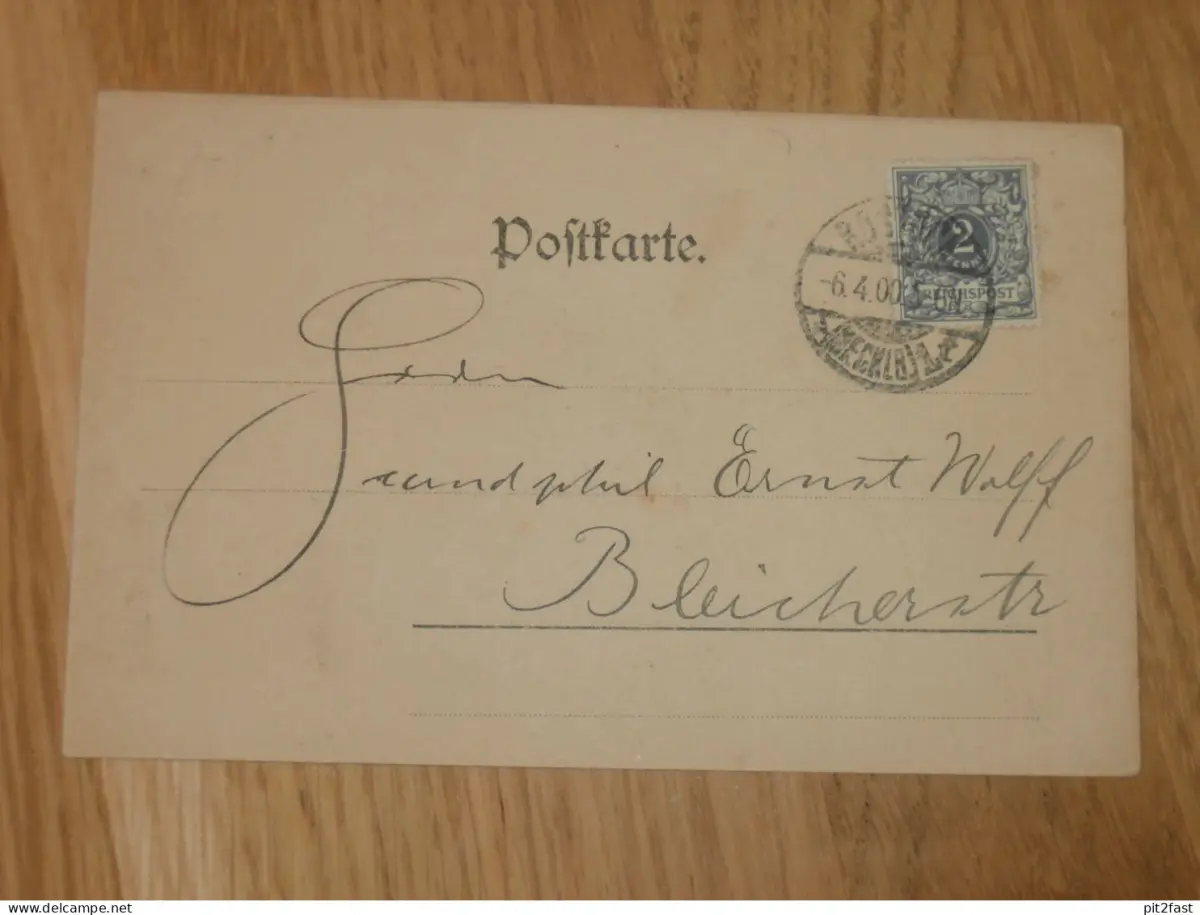 Postkarte.
2
REICHSPOST
6.4.00
(MECKLB) 1.
cand phil Ernst Wolff
Bleicherstr
www.delcampe.net
pit2fast